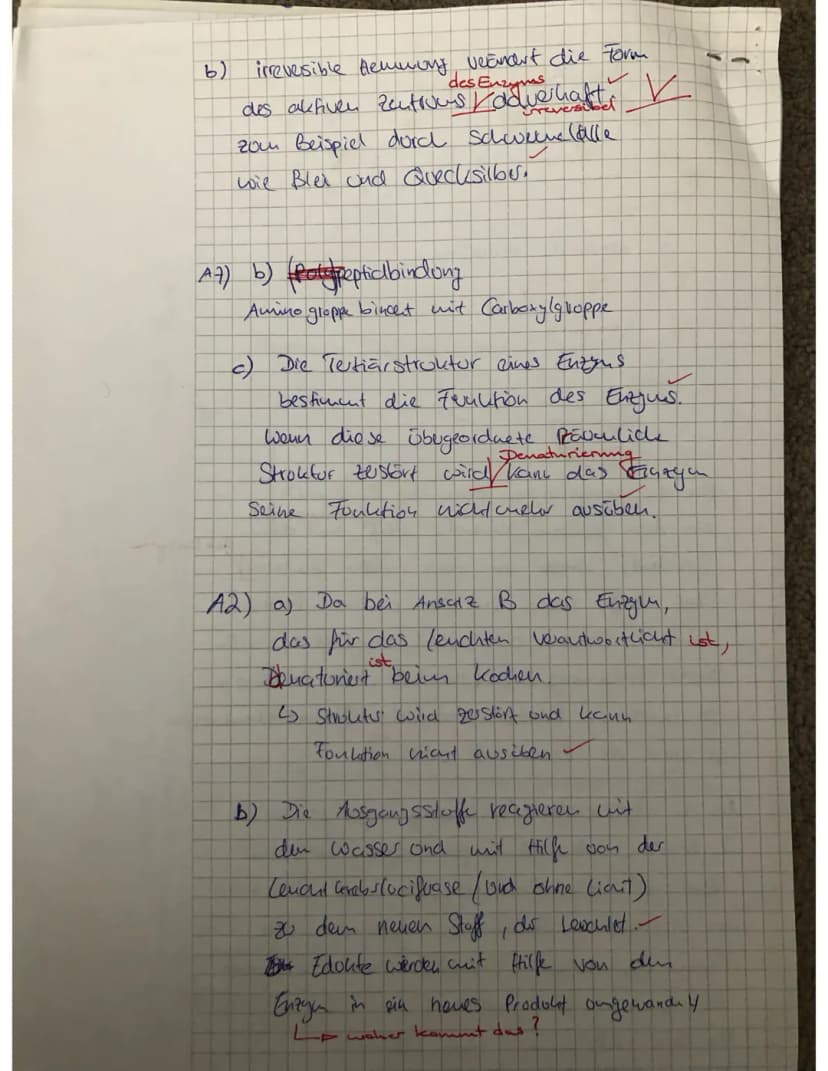 b) irrevesible Hemmung verändert die Form
des Enzyms
des aktiven Zentrums dauerhaft.
irreversibel
zum Beispiel durch Schwermetalle
wie Blei und Quecksilber.
A7) b) (Polypeptidbindung
Aminogruppe bindet mit Carboxylgruppe
c) Die Tertiärstruktur eines Enzyms
bestimmt die Funktion des Enzyms.
Wenn diese übergeordnete räumliche
Denaturierung
Struktur zerstört wird kann das Enzym
Seine Funktion nicht mehr ausüben.
A2) a) Da bei Ansatz B das Enzym,
das für das leuchten verantwortlicht ist,
ist
Denaturiert beim kochen.
↳ Struktur wird zerstört und kann
Funktion nicht ausüben
b) Die Ausgangsstoffe reagieren mit
dem Wasser und mit Hilfe von der
(und ohne Licht)
zu dem neuen Stoff, der Leuchtet.
Edukte werden mit Hilfe von dem
Enzym in ein neues Produkt umgewandelt
↳ woher kommt das?